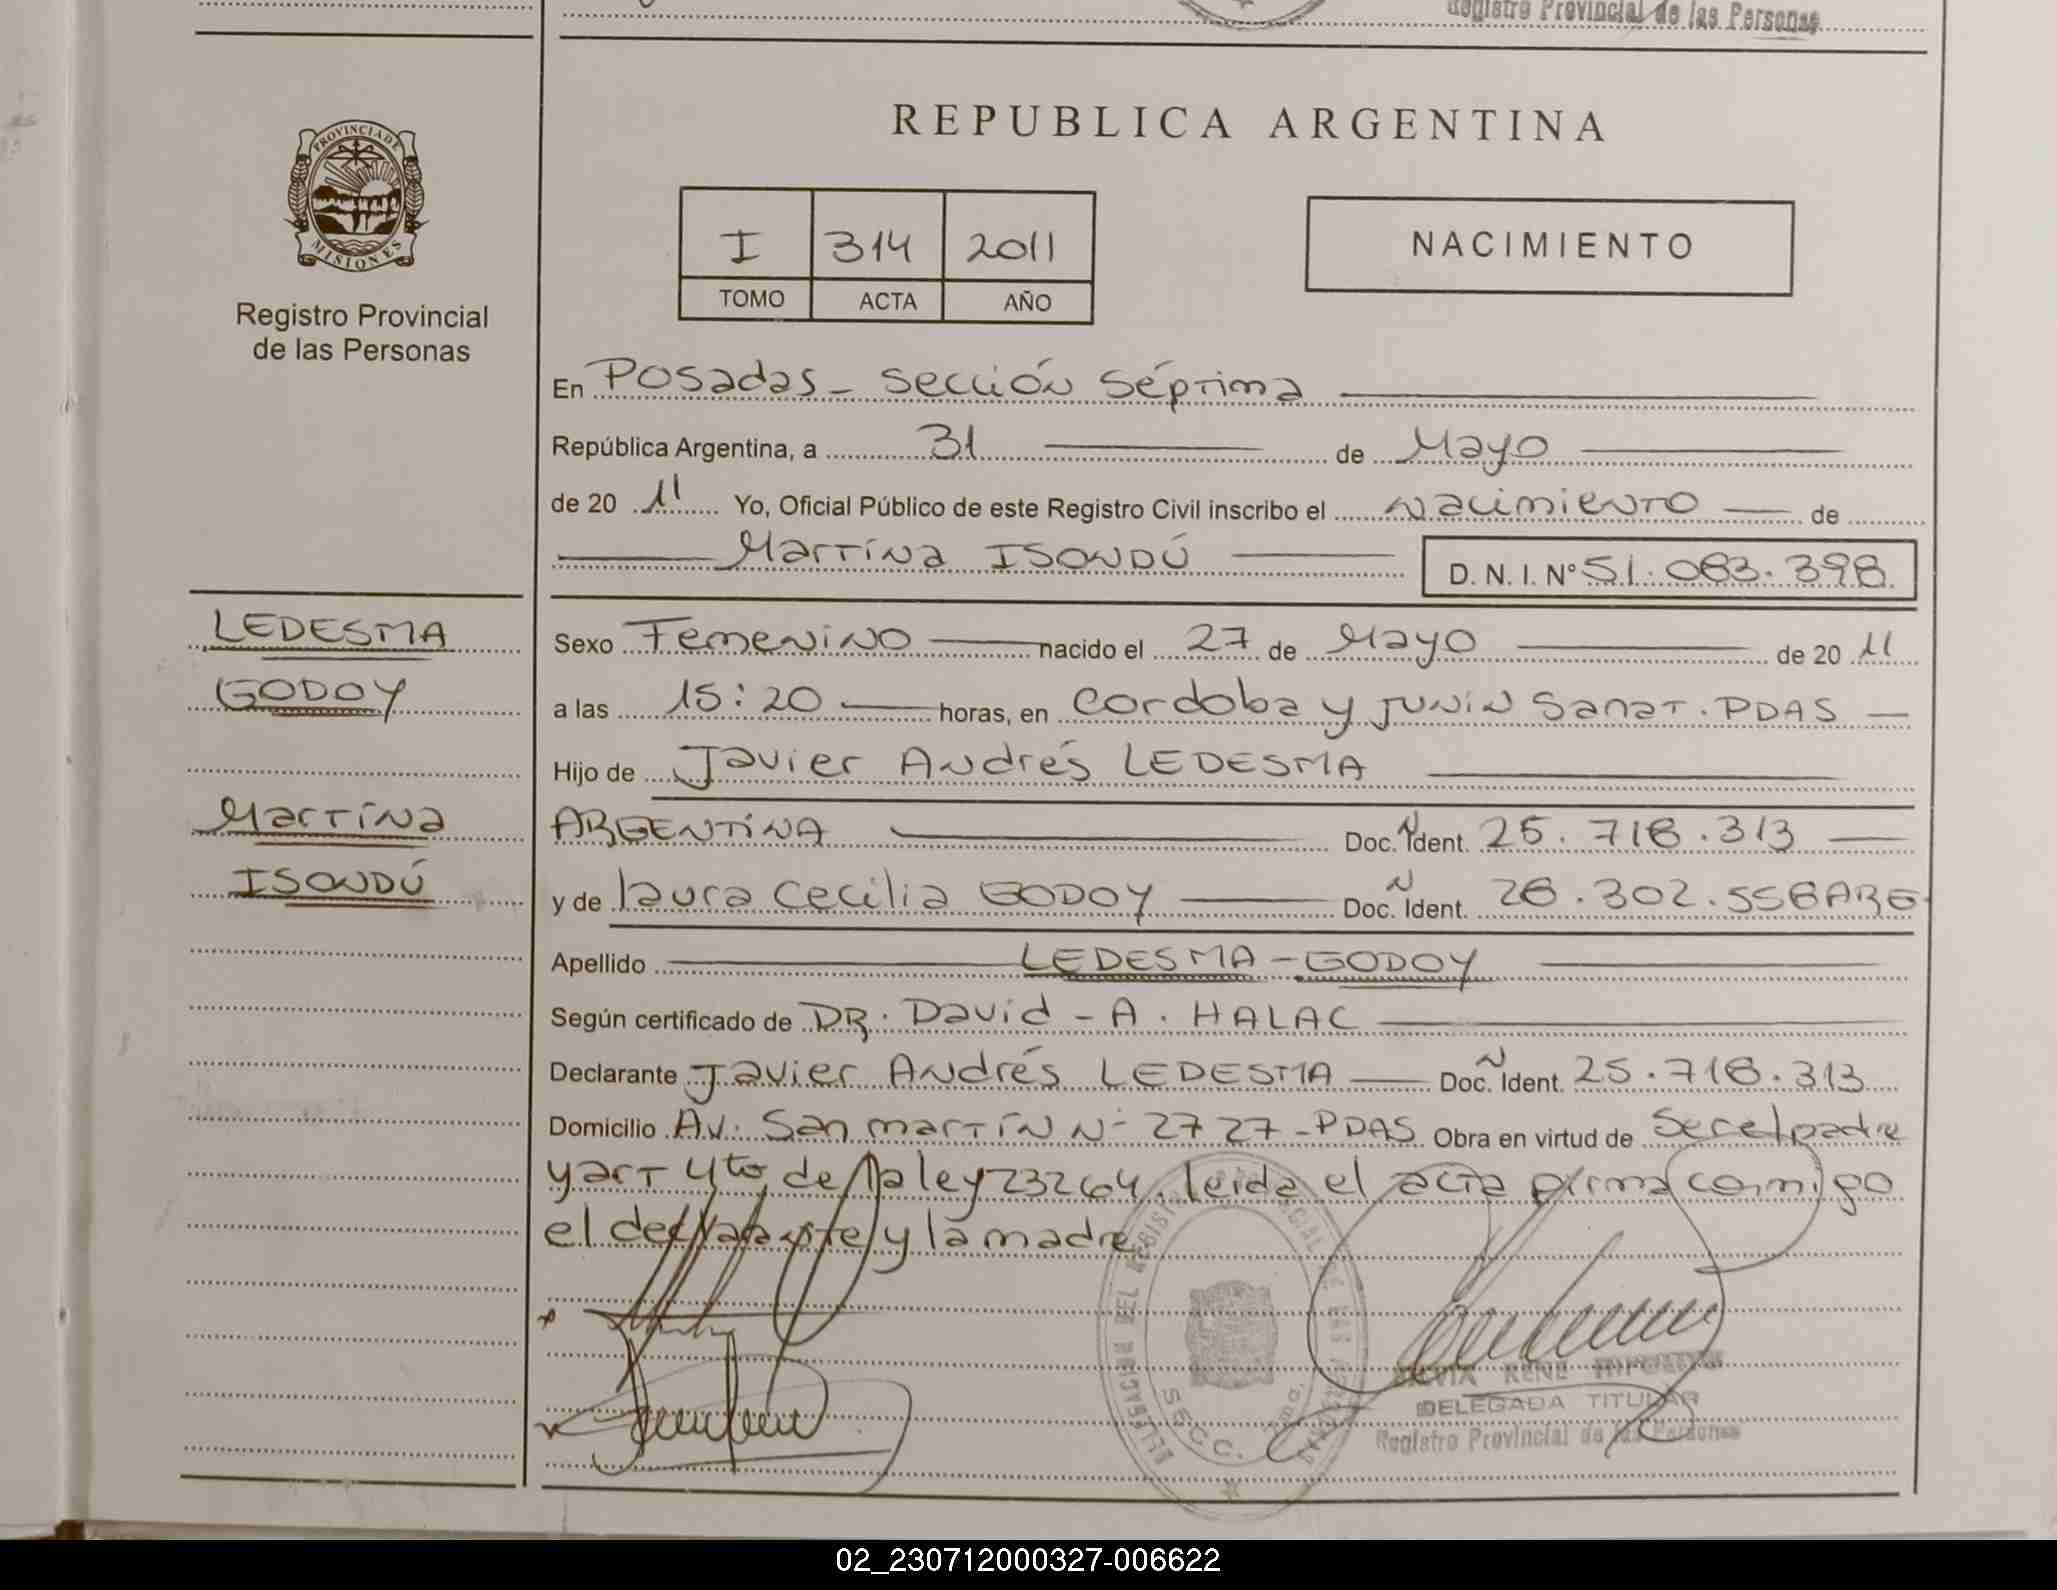 Registro Provincial de las Personas
REPUBLICA ARGENTINA
PROVINCIA DE
MISIONES
Registro Provincial
de las Personas
I 314 2011
TOMO ACTA AÑO
NACIMIENTO
En Posadas - Sección Séptima
República Argentina, a 31 de Mayo
de 20 11 Yo, Oficial Público de este Registro Civil inscribo el Nacimiento de
Martína ISONDÚ D.N.I. N° 51.083.398
LEDESMA
GODOY
Martína
ISONDÚ
Sexo Femenino nacido el 27 de Mayo de 20 11
a las 15:20 horas, en Cordoba y Junín Sanat. PDAS
Hijo de Javier Andrés LEDESMA
ARGENTINA Doc. Ident. 25.718.313
y de Laura Cecilia GODOY Doc. Ident. 28.302.558 ARG
Apellido LEDESMA - GODOY
Según certificado de DR. David - A. HALAC
Declarante Javier Andrés LEDESMA Doc. Ident. 25.718.313
Domicilio Av. San Martín N° 2727 - PDAS Obra en virtud de Ser el padre
y art 4to de la ley 23264. leida el acta firma conmigo
el declarante y la madre.
SECC. 7ma.
RENE
DELEGADA TITULAR
Registro Provincial de las Personas
02_230712000327-006622